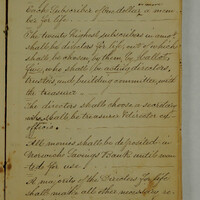 Each Subscriber of one dollar a mem-
ber for life.
The twenty highest subscribers in amt.
shall be directors for life, out of which
shall be chosen by them, by ballot,
five, who shall be acting directors,
trustees, and building committee, with
the treasurer.
The directors shall choose a secretary
who shall be treasurer & director ex-
officio.
All monies shall be deposited in
Norwich Savings Bank until want-
ed for use.
A majority of the Directors for life
shall make all other necessary re-